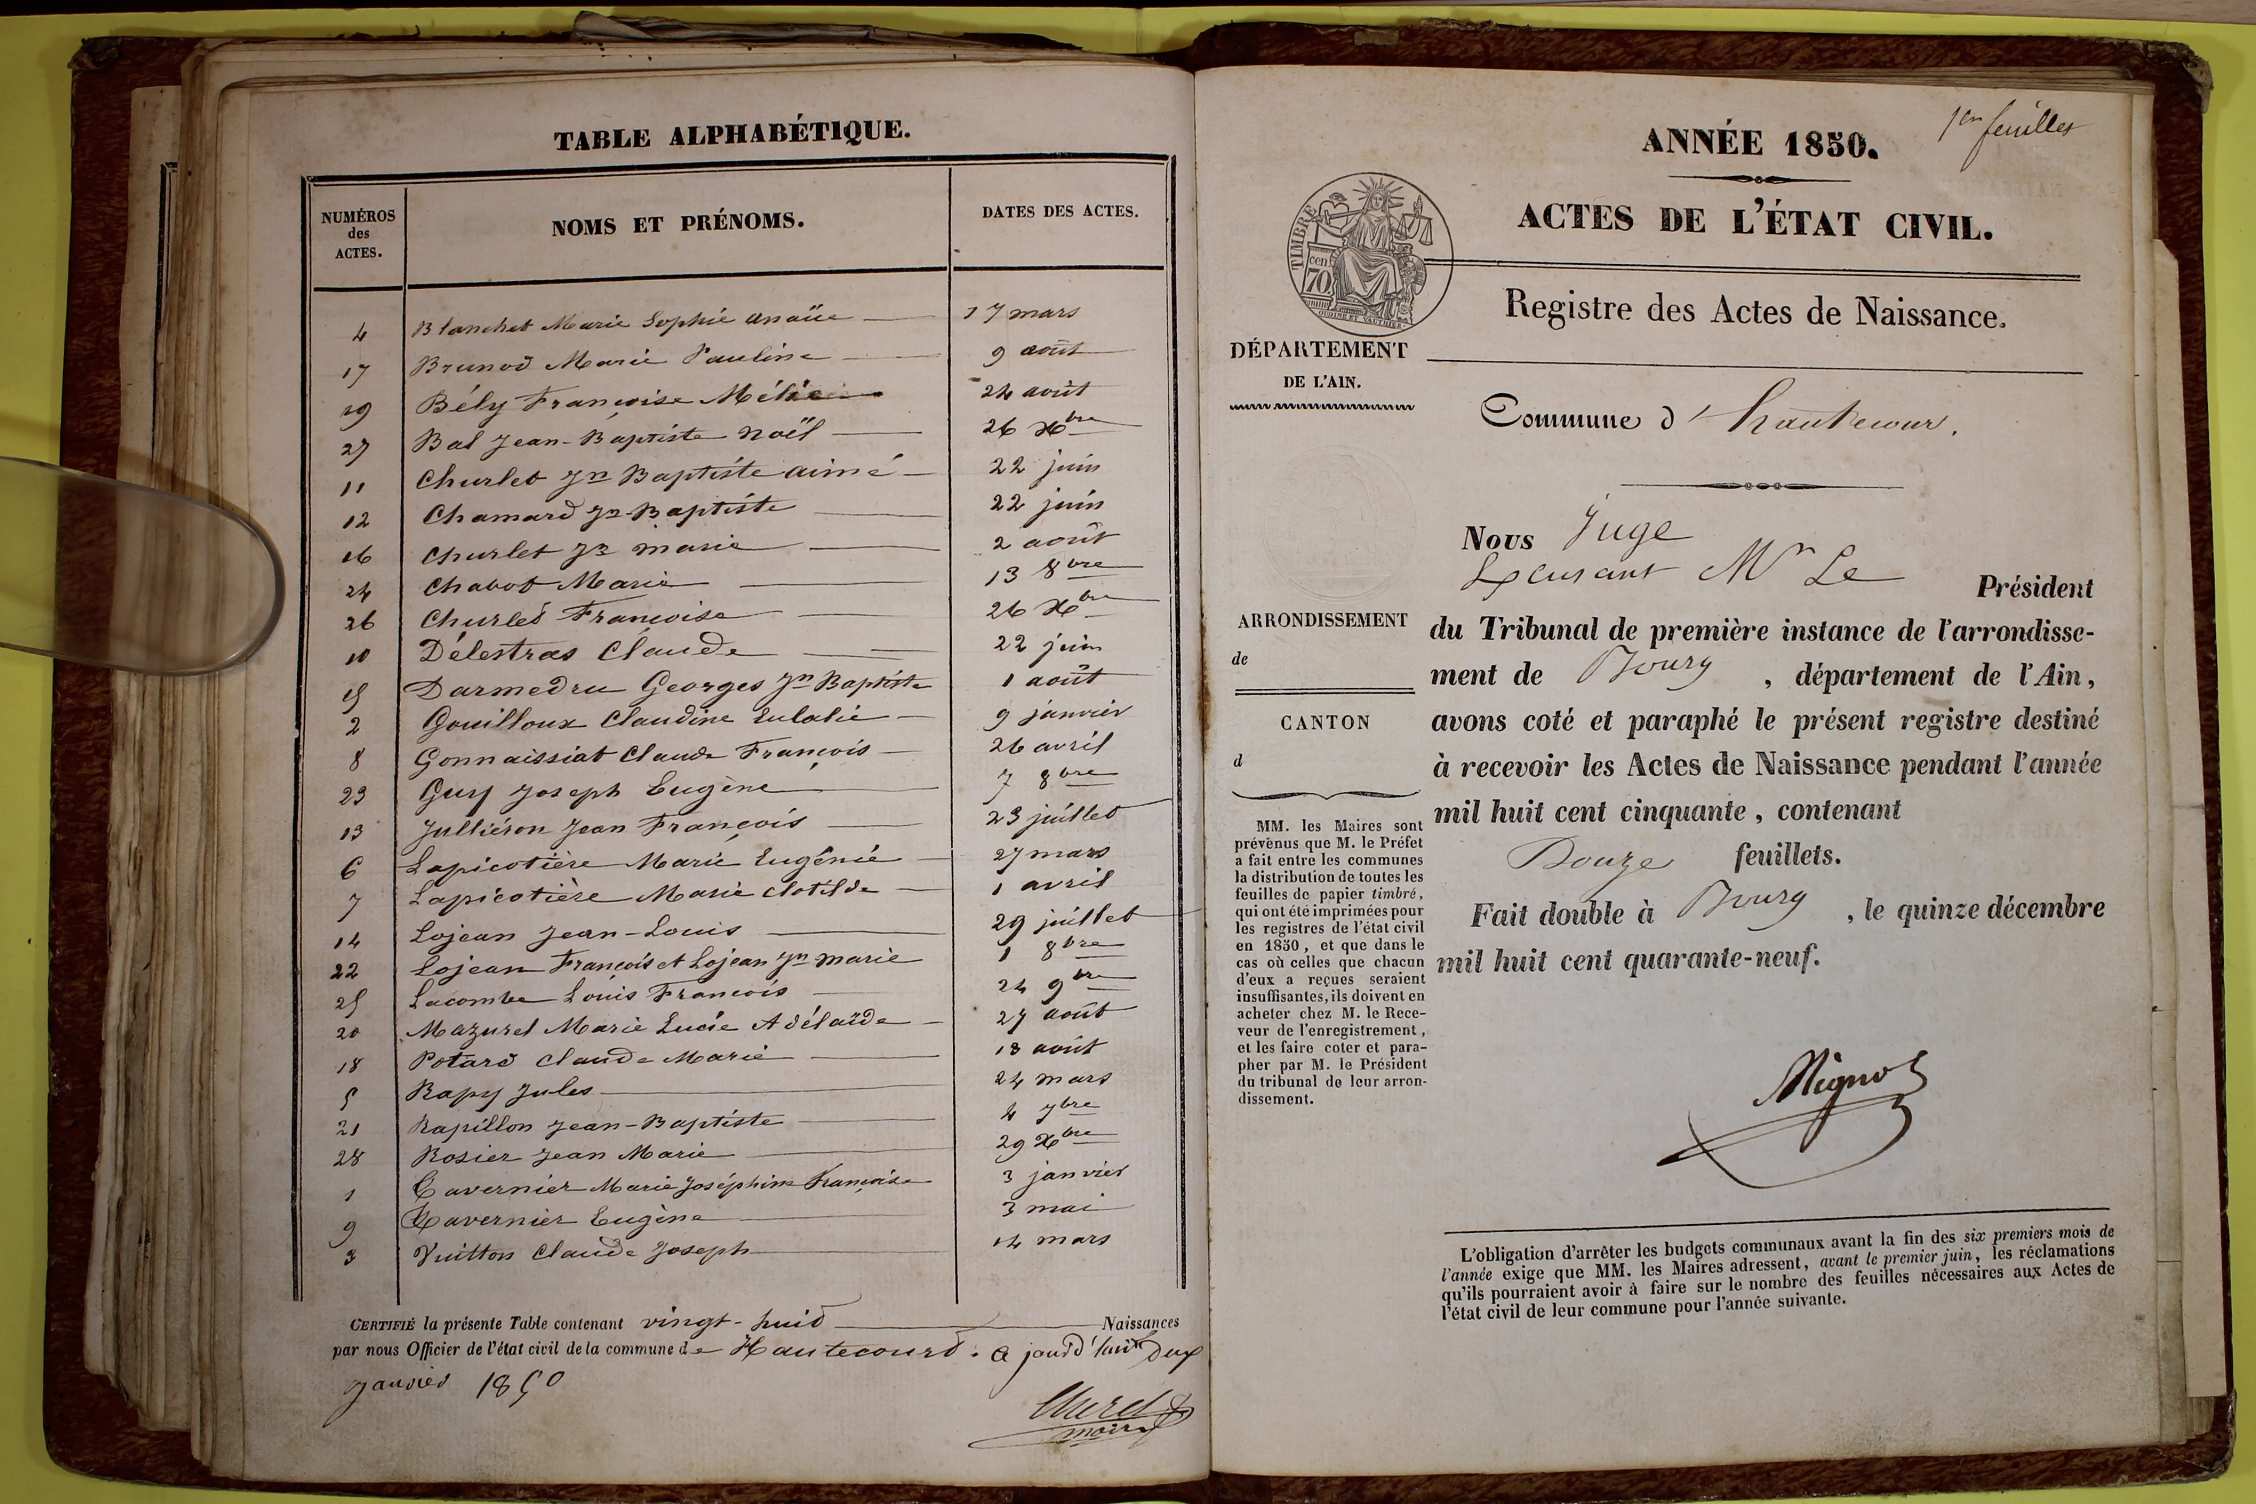 TABLE ALPHABÉTIQUE.
NUMÉROS des ACTES. NOMS ET PRÉNOMS. DATES DES ACTES.
4 Blanchet Marie Sophie 17 mars
17 Brunod Marie Pauline 9 août
19 Bély Françoise 24 août
27 Bal Jean-Baptiste noël 26 Xbre
11 Churlet Jn Baptiste aimé 22 juin
12 Chamard Jn-Baptiste 22 juin
16 Churlet Jn marie 2 août
24 Chabot Marie 13 8bre
26 Churlet Françoise 26 Xbre
10 Délestras Claude 22 juin
15 Darmedru Georges Jn Baptiste 1 août
2 Gouilloux Claudine Eulalie 9 janvier
8 Gonnaissiat Claude François 26 avril
23 Guy Joseph Eugène 7 8bre
13 Julliéron Jean François 23 juillet
6 Lapicotière Marie Eugénie 27 mars
7 Lapicotière Marie Clotilde 1 avril
14 Lojean Jean-Louis 29 juillet
22 Lojean François et Lojean Jn marie 1 8bre
25 Lacombe Louis François 24 9bre
20 Mazurel Marie Lucie Adélaïde 27 août
18 Potard Claude Marie 18 août
5 Rapy Jules 24 mars
21 Rapillon Jean-Baptiste 4 7bre
28 Rosier Jean Marie 29 Xbre
1 Tavernier Marie Joséphine Françoise 3 janvier
9 Tavernier Eugène 3 mai
3 Vuitton Claude Joseph 14 mars
CERTIFIÉ la présente Table contenant vingt-huit Naissances
par nous Officier de l'état civil de la commune de Hautecourt. a jourd'hui Deux
Janvier 1850
maire
1er feuillet
ANNÉE 1850.
ACTES DE L'ÉTAT CIVIL.
TIMBRE
cen
70
OUDINE ET VAUTHIER
Registre des Actes de Naissance.
DÉPARTEMENT
DE L'AIN.
Commune d'hautecour.
ARRONDISSEMENT
de
CANTON
d
MM. les Maires sont
prévenus que M. le Préfet
a fait entre les communes
la distribution de toutes les
feuilles de papier timbré,
qui ont été imprimées pour
les registres de l'état civil
en 1850, et que dans le
cas où celles que chacun
d'eux a reçues seraient
insuffisantes, ils doivent en
acheter chez M. le Rece-
veur de l'enregistrement,
et les faire coter et para-
pher par M. le Président
du tribunal de leur arron-
dissement.
Nous Juge
Mr Le Président
du Tribunal de première instance de l'arrondisse-
ment de Bourg, département de l'Ain,
avons coté et paraphé le présent registre destiné
à recevoir les Actes de Naissance pendant l'année
mil huit cent cinquante, contenant
Douze feuillets.
Fait double à Bourg, le quinze décembre
mil huit cent quarante-neuf.
Mignot
L'obligation d'arrêter les budgets communaux avant la fin des six premiers mois de
l'année exige que MM. les Maires adressent, avant le premier juin, les réclamations
qu'ils pourraient avoir à faire sur le nombre des feuilles nécessaires aux Actes de
l'état civil de leur commune pour l'année suivante.